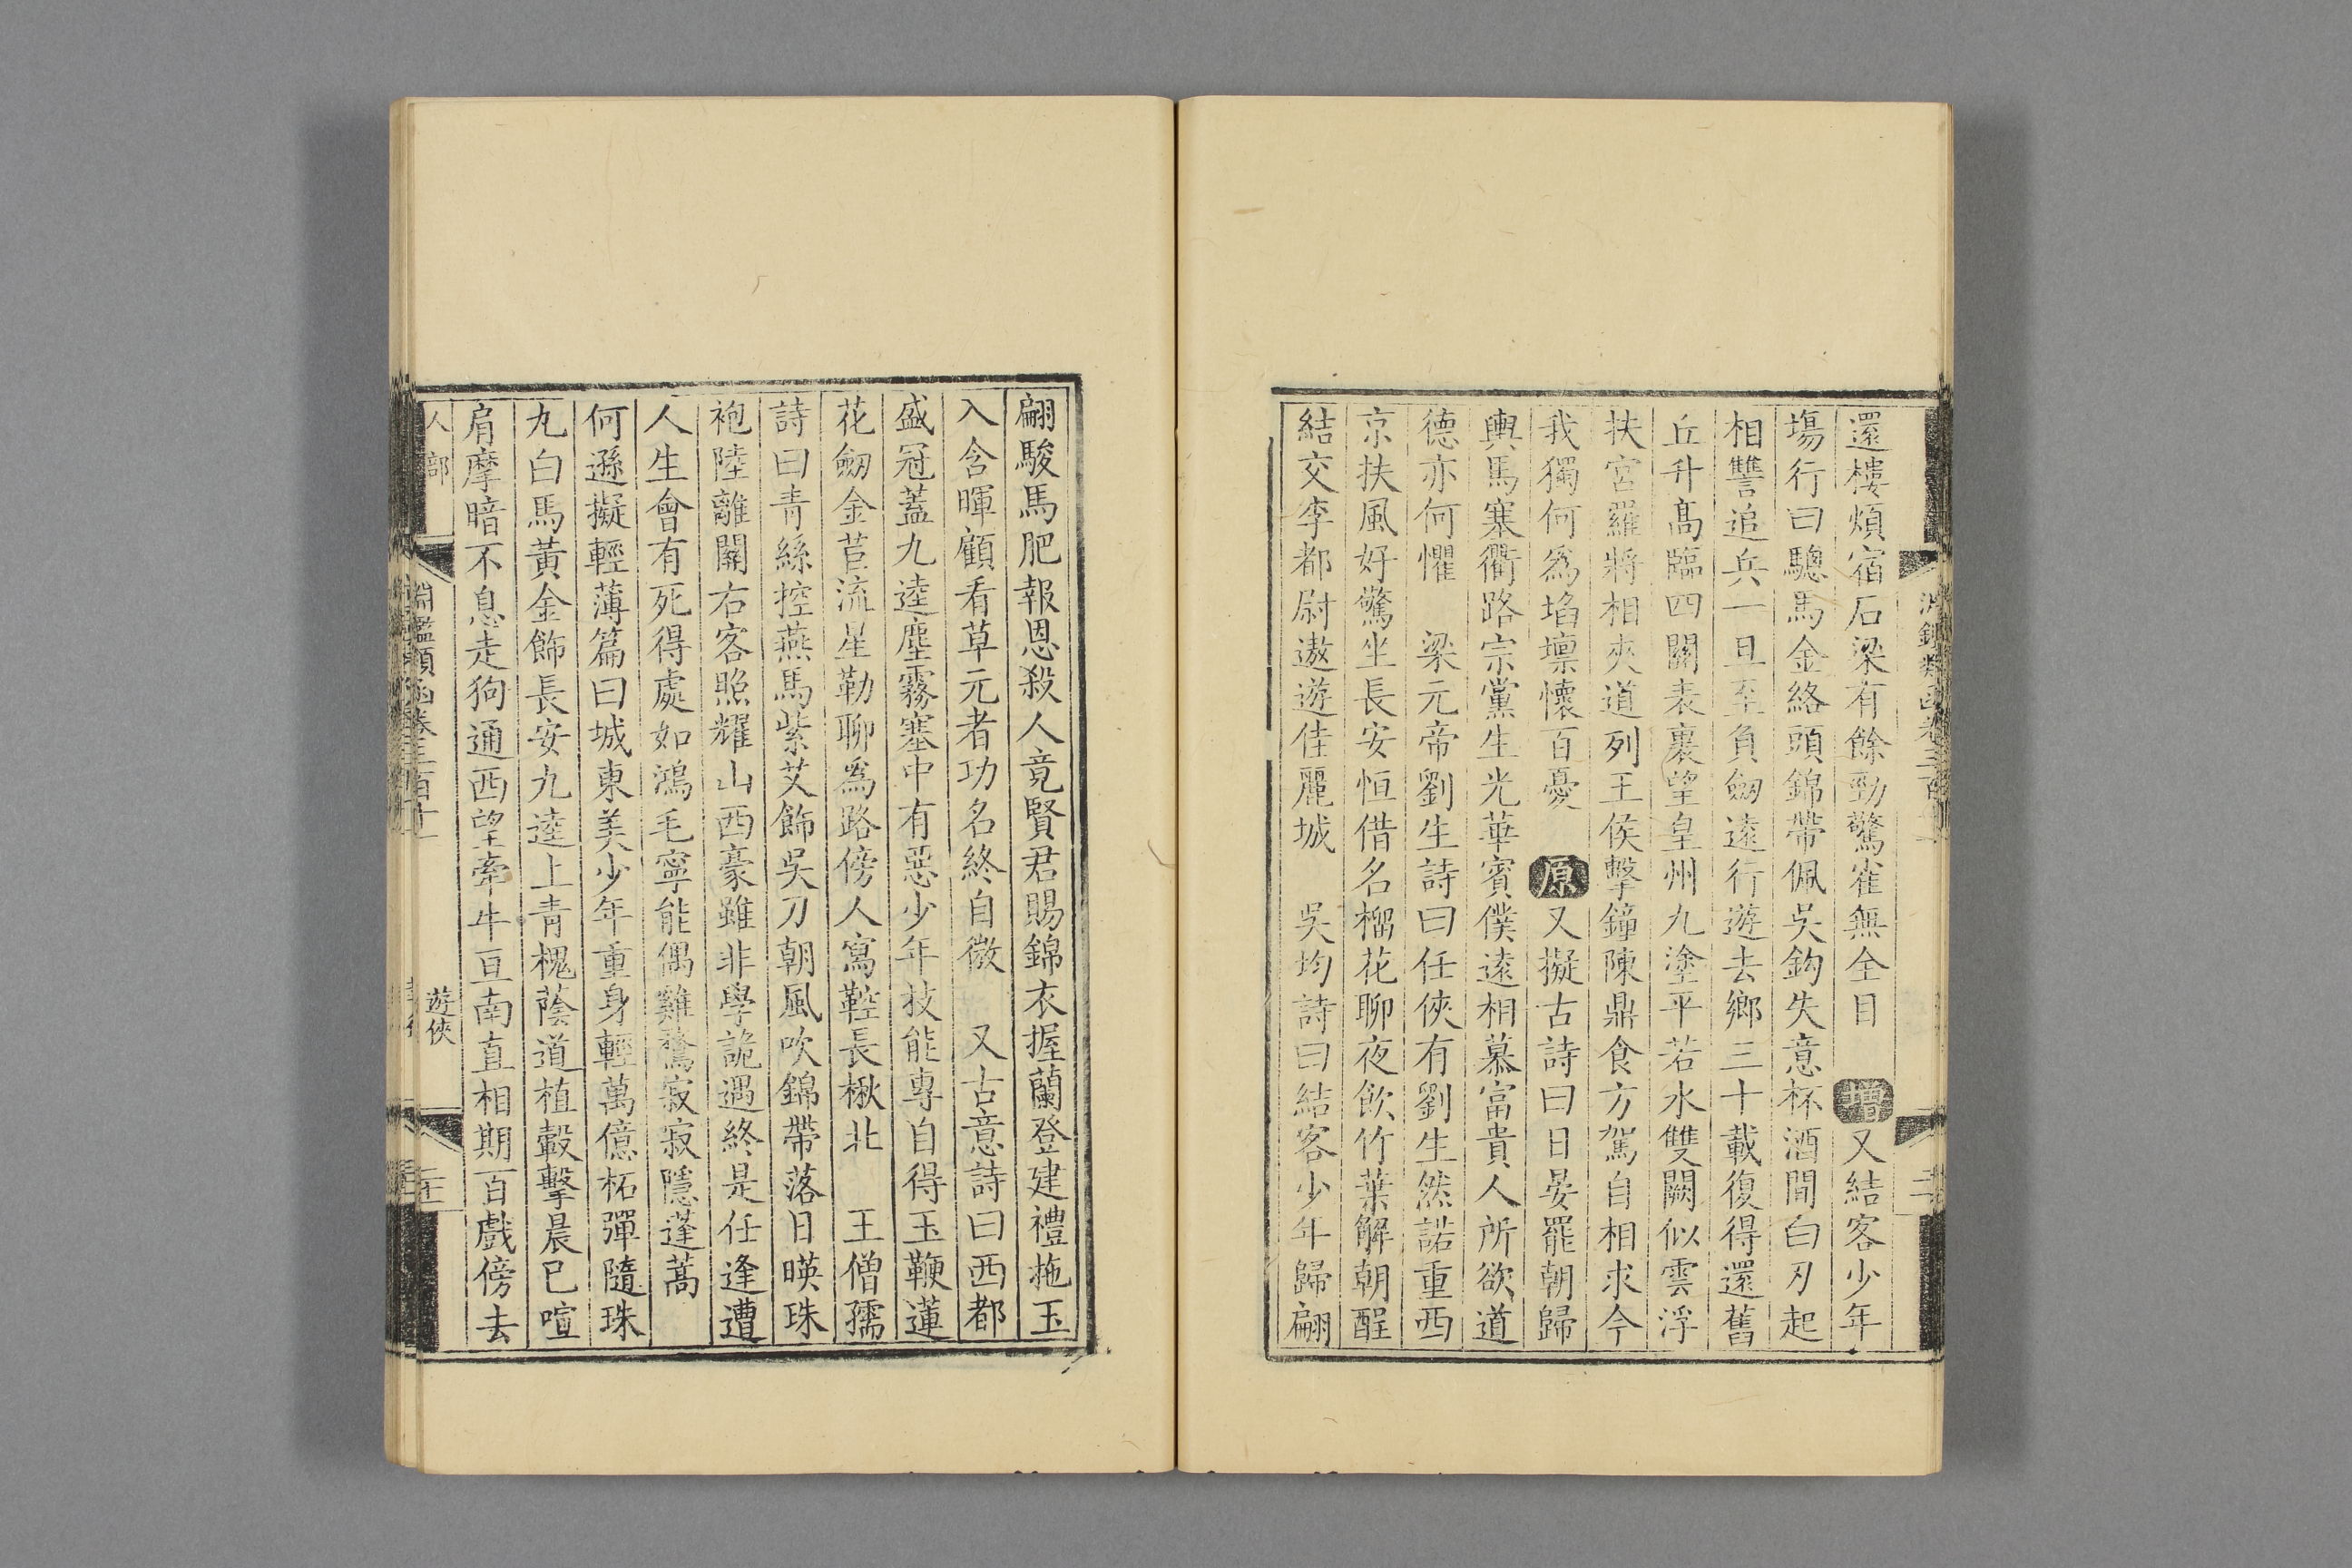 還樓煩宿石梁有餘勁驚雀無全目 增又結客少年
場行曰驄馬金絡頭錦帶佩吳鈎失意杯酒間白刃起
相讐追兵一旦至負劒遠行遊去鄉三十載復得還舊
丘升高臨四關表裏望皇州九塗平若水雙闕似雲浮
扶宮羅將相夾道列王侯擊鐘陳鼎食方駕自相求今
我獨何為埳壈懷百憂 原又擬古詩曰日晏罷朝歸
輿馬塞衢路宗黨生光華賓僕遠相慕富貴人所欲道
德亦何懼 梁元帝劉生詩曰任俠有劉生然諾重西
京扶風好驚坐長安恒借名榴花聊夜飲竹葉解朝酲
結交李都尉遨遊佳麗城 吳均詩曰結客少年歸翩
翩駿馬肥報恩殺人竟賢君賜錦衣握蘭登建禮拖玉
入含暉顧看草元者功名終自微 又古意詩曰西都
盛冠蓋九逵塵霧塞中有惡少年技能專自得玉鞭蓮
花劒金苣流星勒聊為路傍人寫鞚長楸北 王僧孺
詩曰青絲控燕馬紫艾飾吳刀朝風吹錦帶落日暎珠
袍陸離關右客照耀山西豪雖非學詭遇終是任逢遭
人生會有死得處如鴻毛寧能偶雞鶩寂寂隱蓬蒿
何遜擬輕薄篇曰城東美少年重身輕萬億柘彈隨珠
九白馬黃金飾長安九逵上青槐蔭道植轂擊晨已喧
肩摩暗不息走狗通西望牽牛亘南直相期百戲傍去
人部
淵鑑類函卷三百十一
遊俠